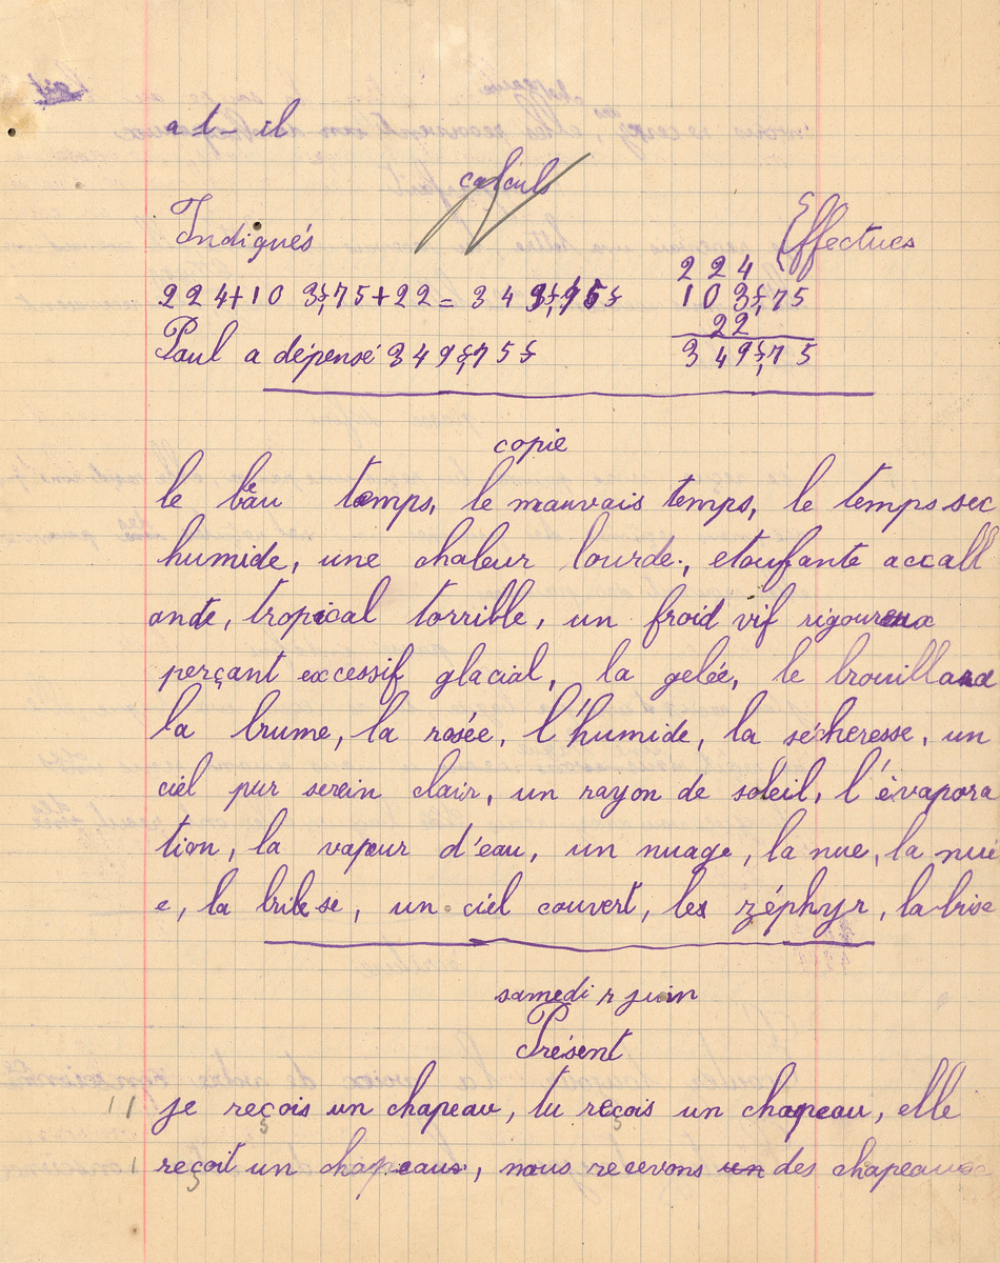 a t-il
calculs
Indiqués Effectues
224
224+10 3f,75+22= 349f,75f 103f,75
22
Paul a dépensé 349f,75f 349f,75
copie
le beau temps, le mauvais temps, le temps sec
humide, une chaleur lourde, etoufante accall
ante, tropical torrible, un froid vif rigoureux
perçant excessif glacial, la gelée, le brouillard
la brume, la rosée, l'humide, la sécheresse, un
ciel pur serein clair, un rayon de soleil, l'évapora
tion, la vapeur d'eau, un nuage, la nue, la nué
e, la brise, un ciel couvert, les zéphyr, la brise
samedi juin
Présent
je reçois un chapeau, tu reçois un chapeau, elle
reçoit un chapeau, nous recevons un des chapeaux